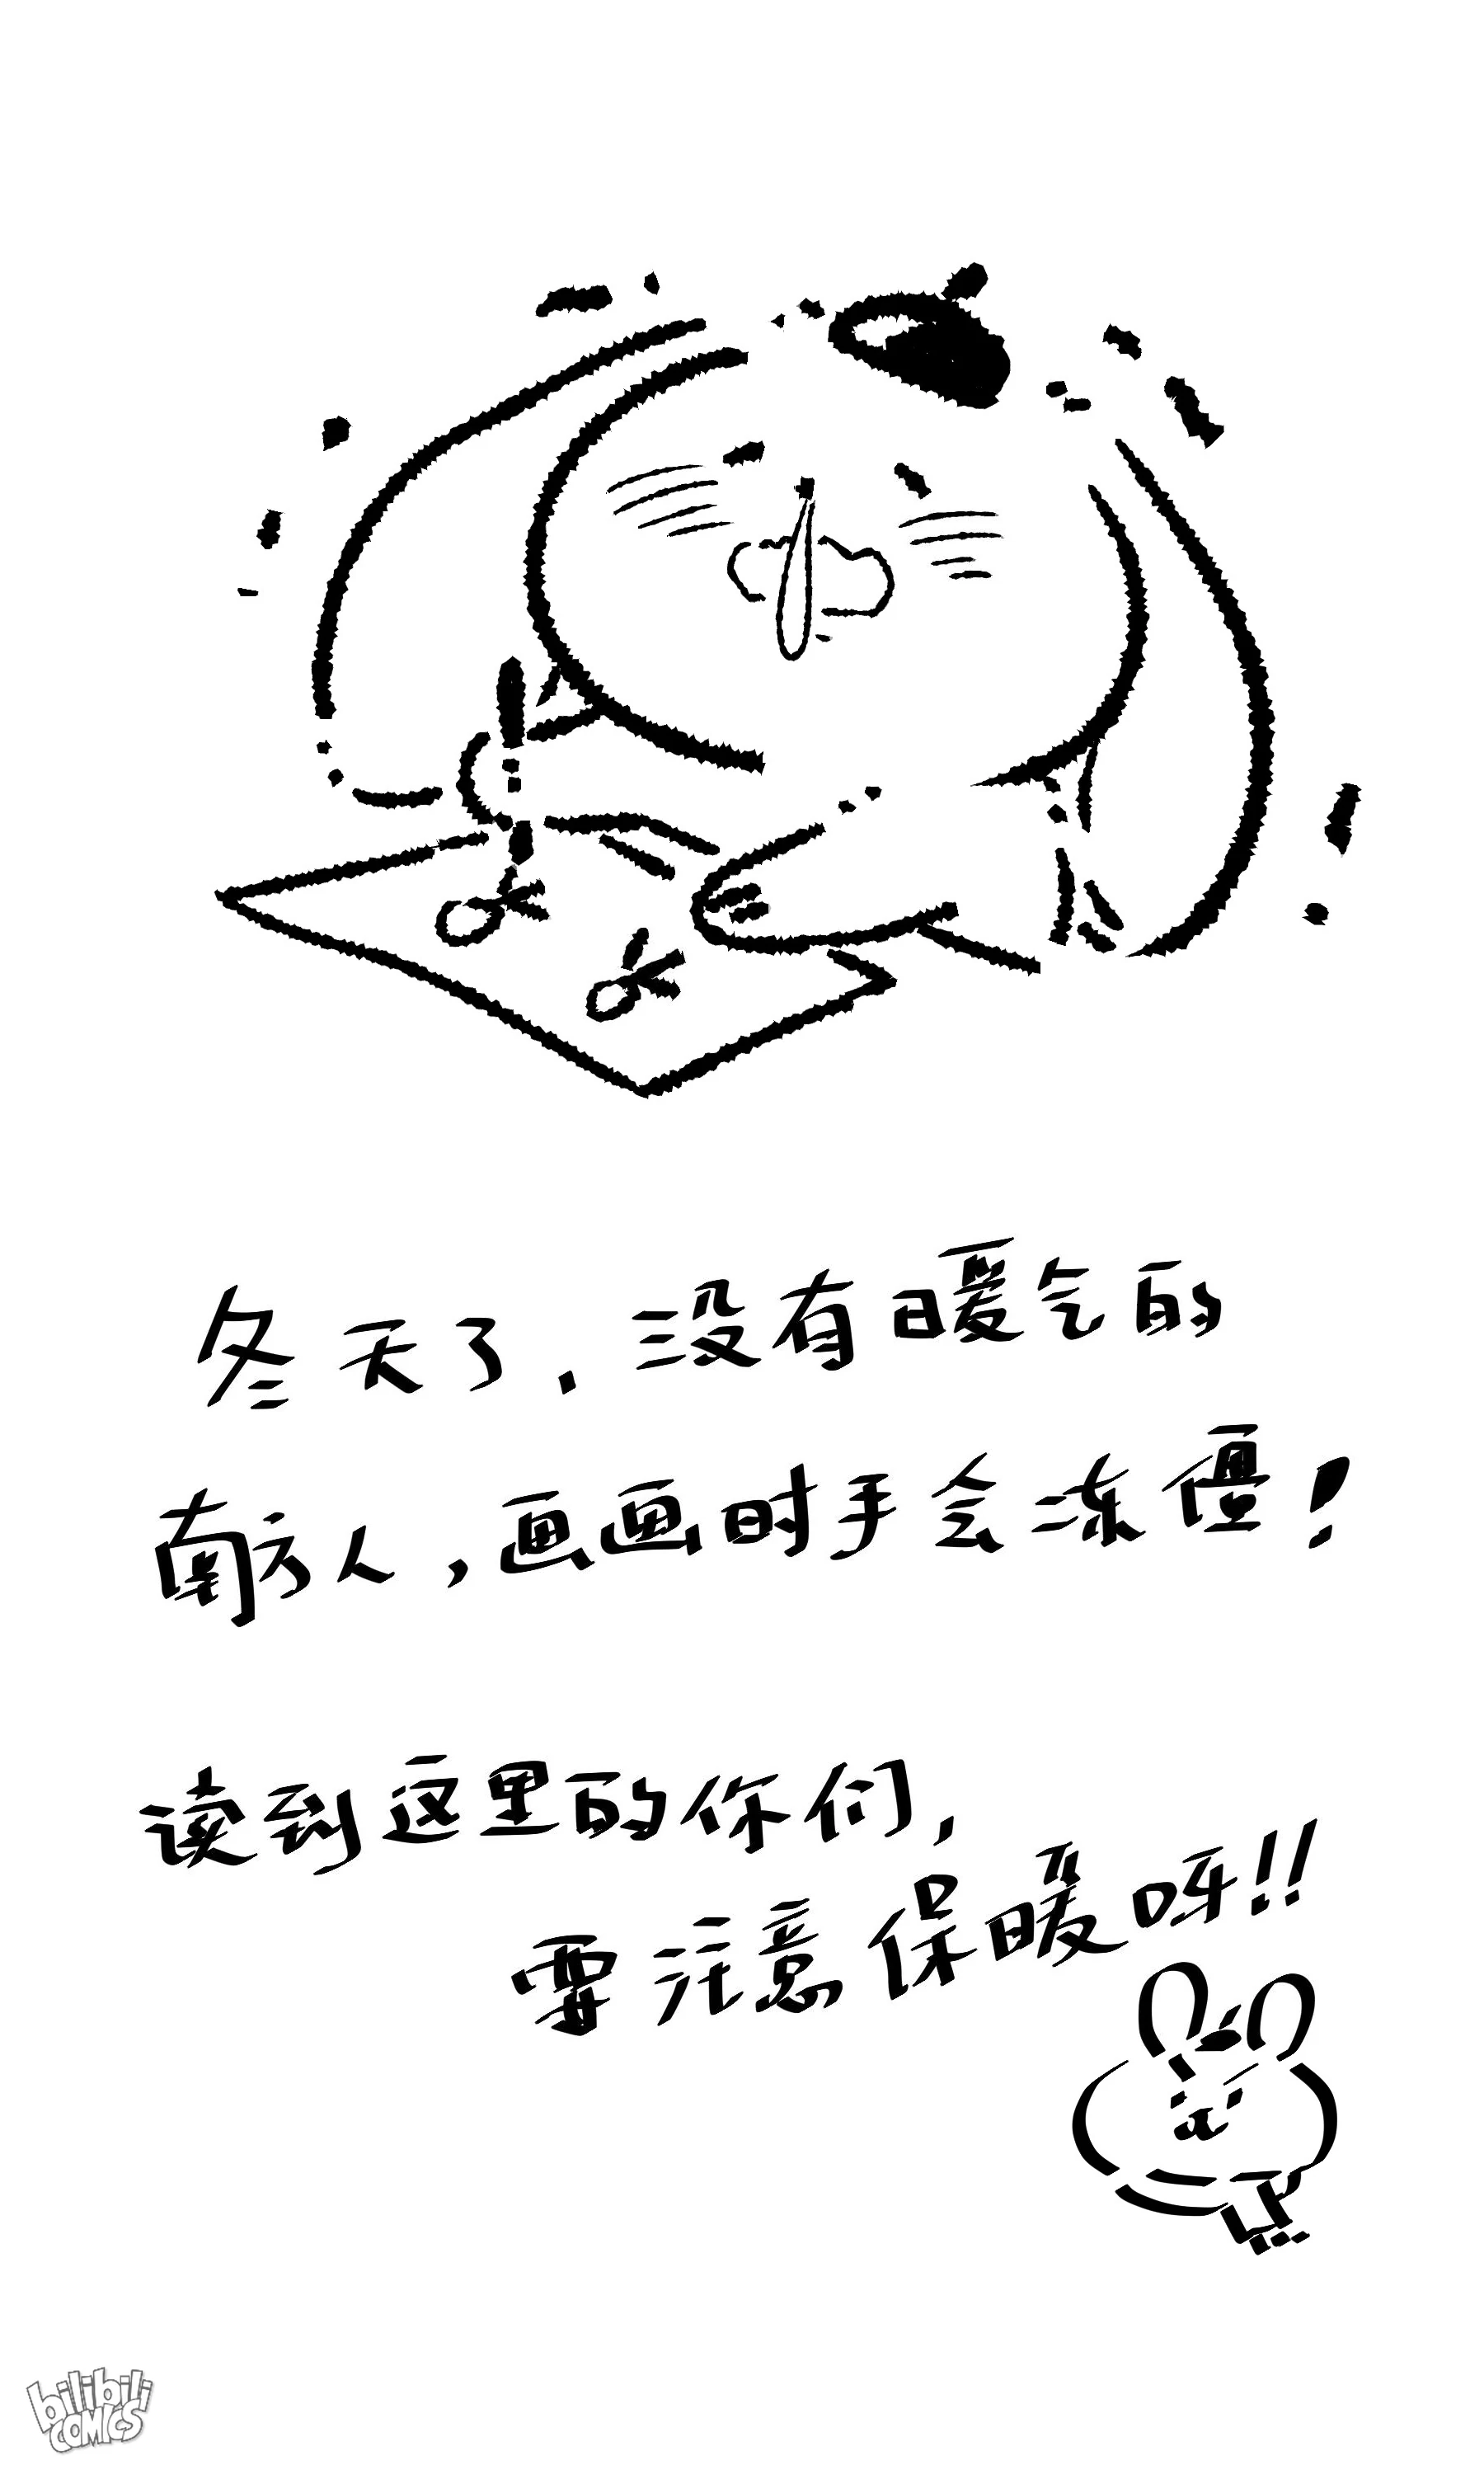 冬天了，没有暖气的
南方人，画画时手会冻僵！
读到这里的你们，
要注意保暖呀！！
bilibili
COMICS